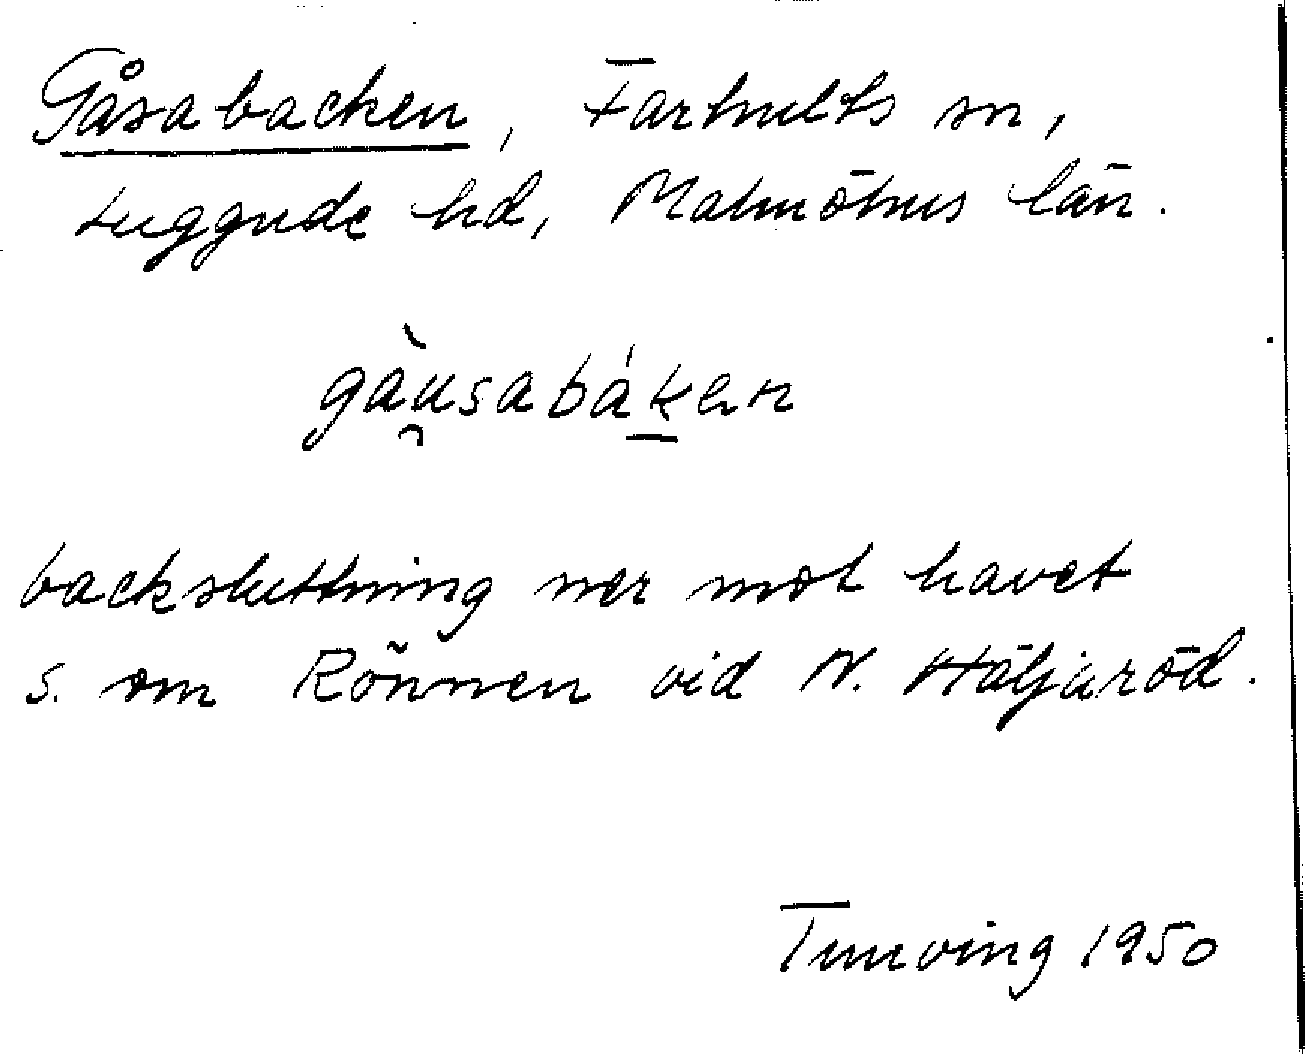 Gåsabacken, Farhults sn,
Luggude hd, Malmöhus län.
gàu̯sabák̲en
backsluttning ner mot havet
s. om Rönnen vid N. Häljaröd.
Tunving 1950